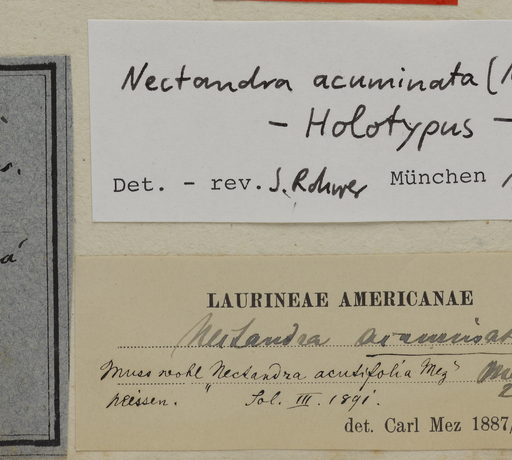 Nectandra acuminata (
- Holotypus -
Det. - rev. J. Rohwer München
s.
a
LAURINEAE AMERICANAE
Nectandra acuminat
Muss wohl "Nectandra acutifolia Mez"
heissen. Sol. III. 1891.
det. Carl Mez 1887/